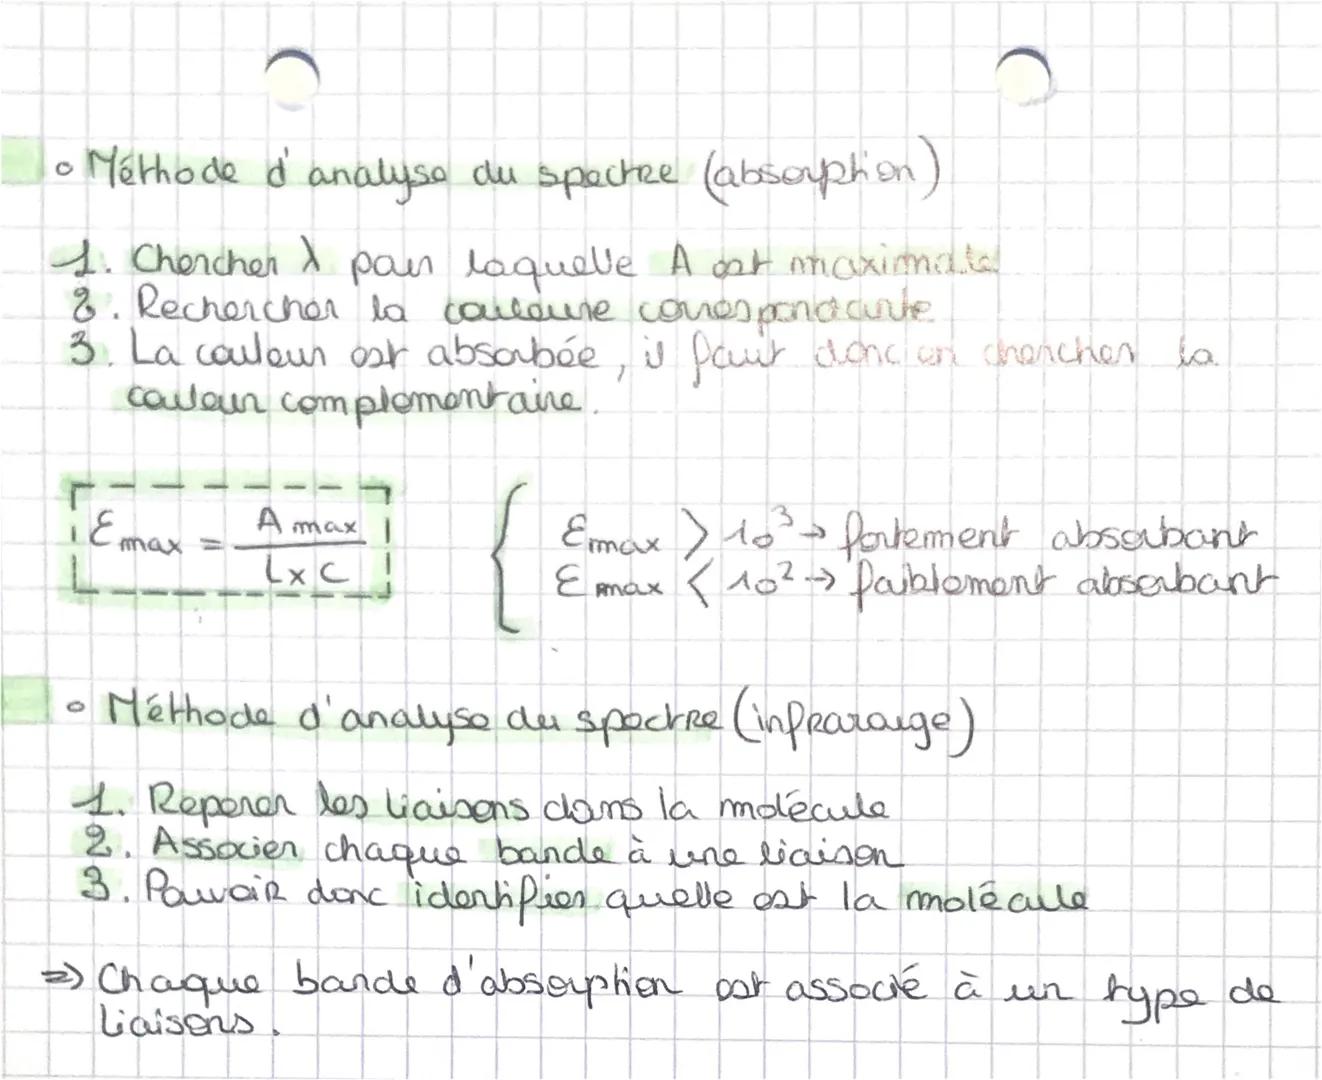 • Méthode d'analyse du spectre (absorption)
1. Chercher λ pour laquelle A est maximale
2. Rechercher la couleure correspondante
3. La couleur est absorbée, il faut donc en chercher la
couleur complementaire.
Emax = A max / L x C
Emax > 10³ → fortement absorbant
Emax < 10² → faiblement absorbant
• Méthode d'analyse du spectre (infrarouge)
1. Reperer les liaisons dans la molécule
2. Associer chaque bande à une liaison
3. Pouvoir donc identifier quelle est la molécule
=> Chaque bande d'absorption est associé à un type de
liaisons.